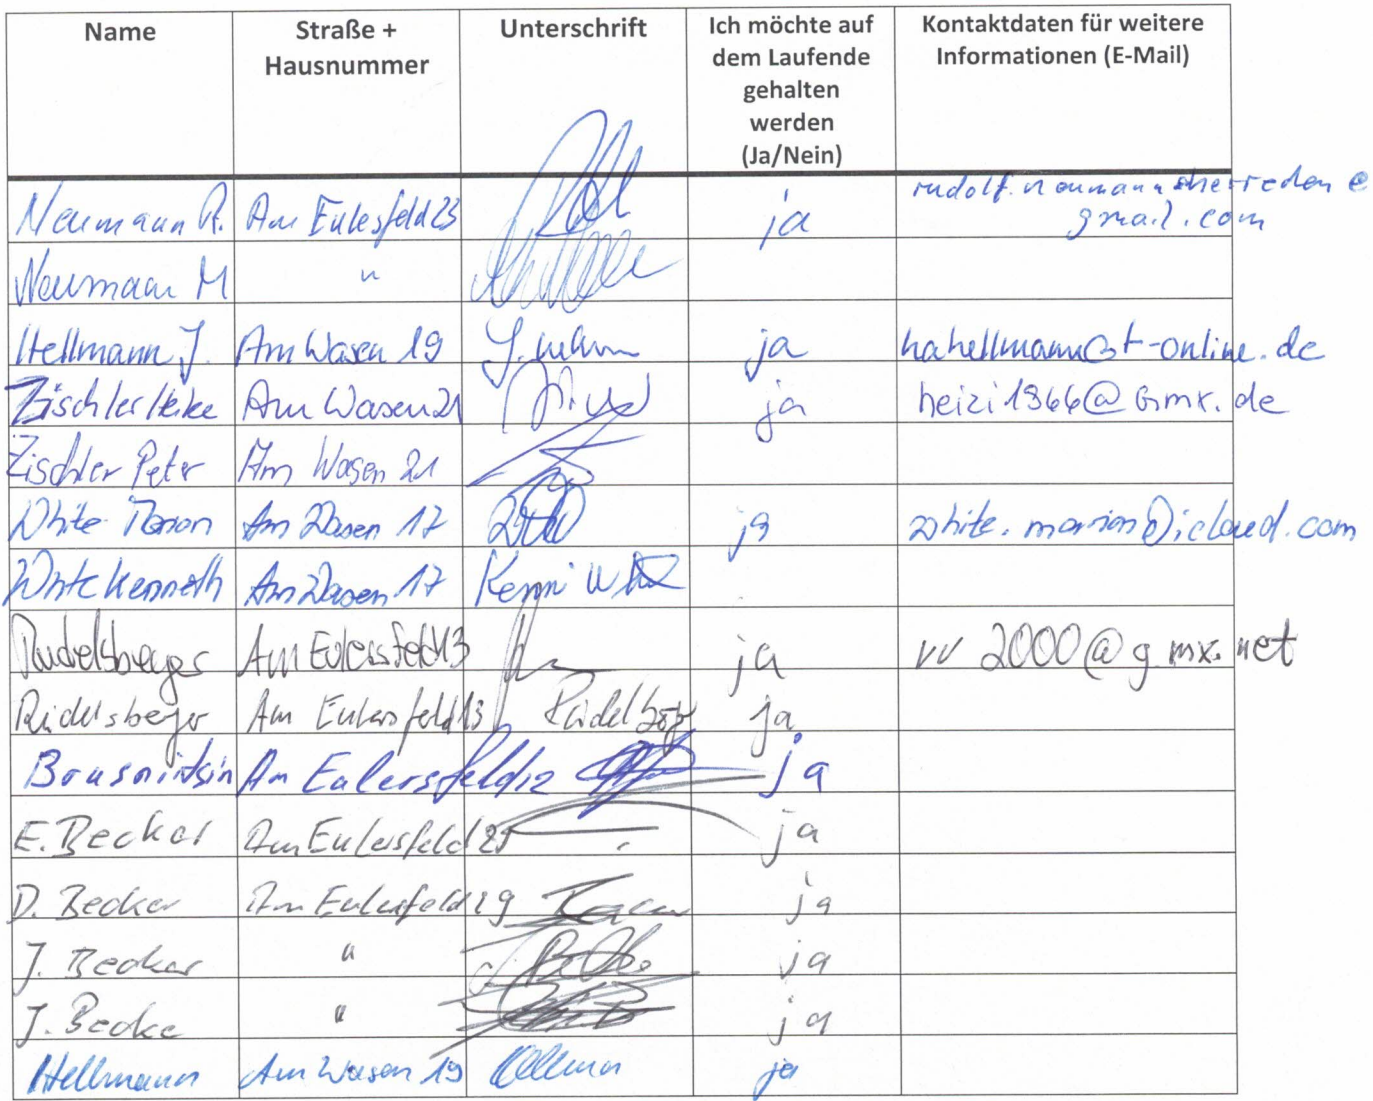 Name Straße + Hausnummer Unterschrift Ich möchte auf dem Laufende gehalten werden (Ja/Nein) Kontaktdaten für weitere Informationen (E-Mail)
Neumann R. Am Eulesfeld 23 ja rudolf.neumannsherreden@gmail.com
Neumann M "
Hellmann J. Am Wasen 19 ja hahellmann@t-online.de
Zischler Heike Am Wasen 21 ja heizi1966@Gmx.de
Zischler Peter Am Wasen 21
White Marion Am Wasen 17 ja white.marion@icloud.com
White Kenneth Am Wasen 17
Rudelsberger Am Eulersfeld 13 ja vv2000@gmx.net
Ridelsberger Am Eulersfeld 13 ja
Am Eulersfeld 12 ja
E. Becker Am Eulersfeld 29 ja
D. Becker Am Eulersfeld 29 ja
J. Becker " ja
J. Becke " ja
Hellmann Am Wasen 19 ja